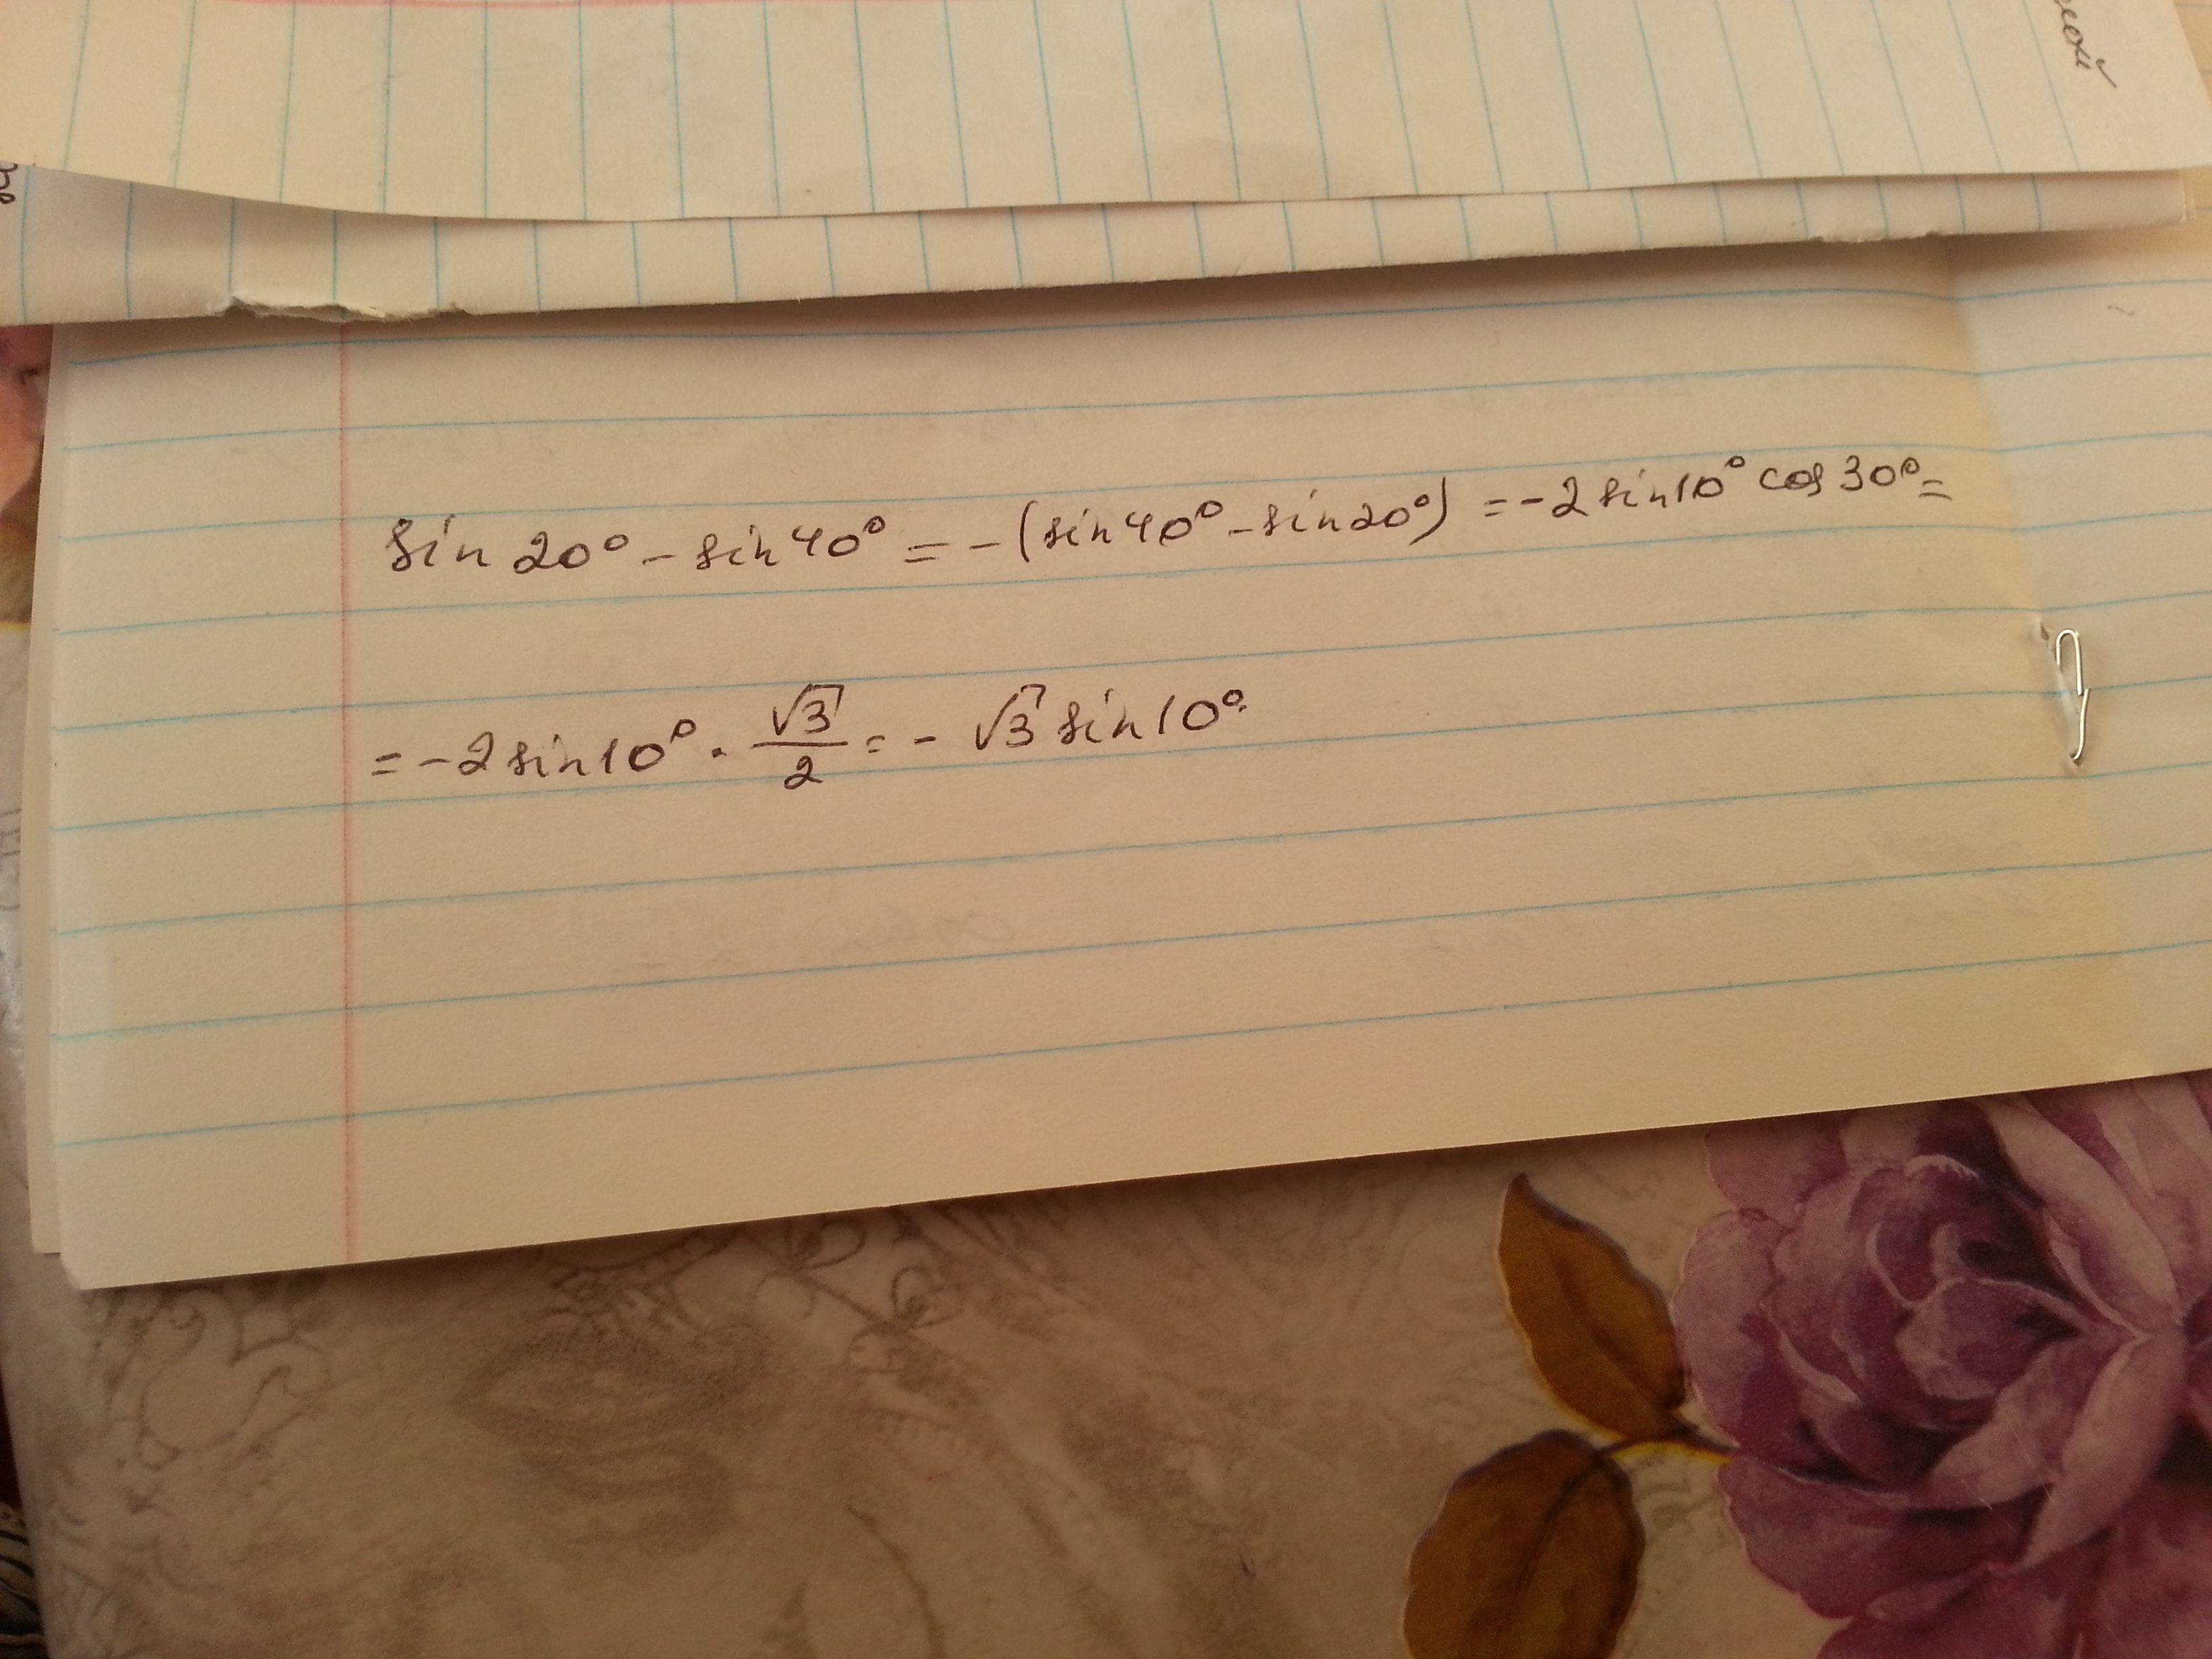 sin 20° - sin 40° = -(sin 40° - sin 20°) = -2 sin 10° cos 30° =
= -2 sin 10° · √3/2 = - √3 sin 10°